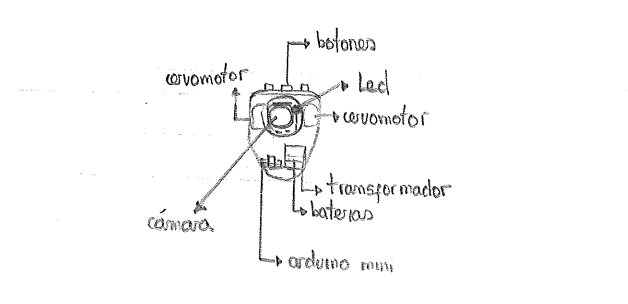 botones
cervomotor
Led
cervomotor
transformador
baterias
cámara
arduino mini